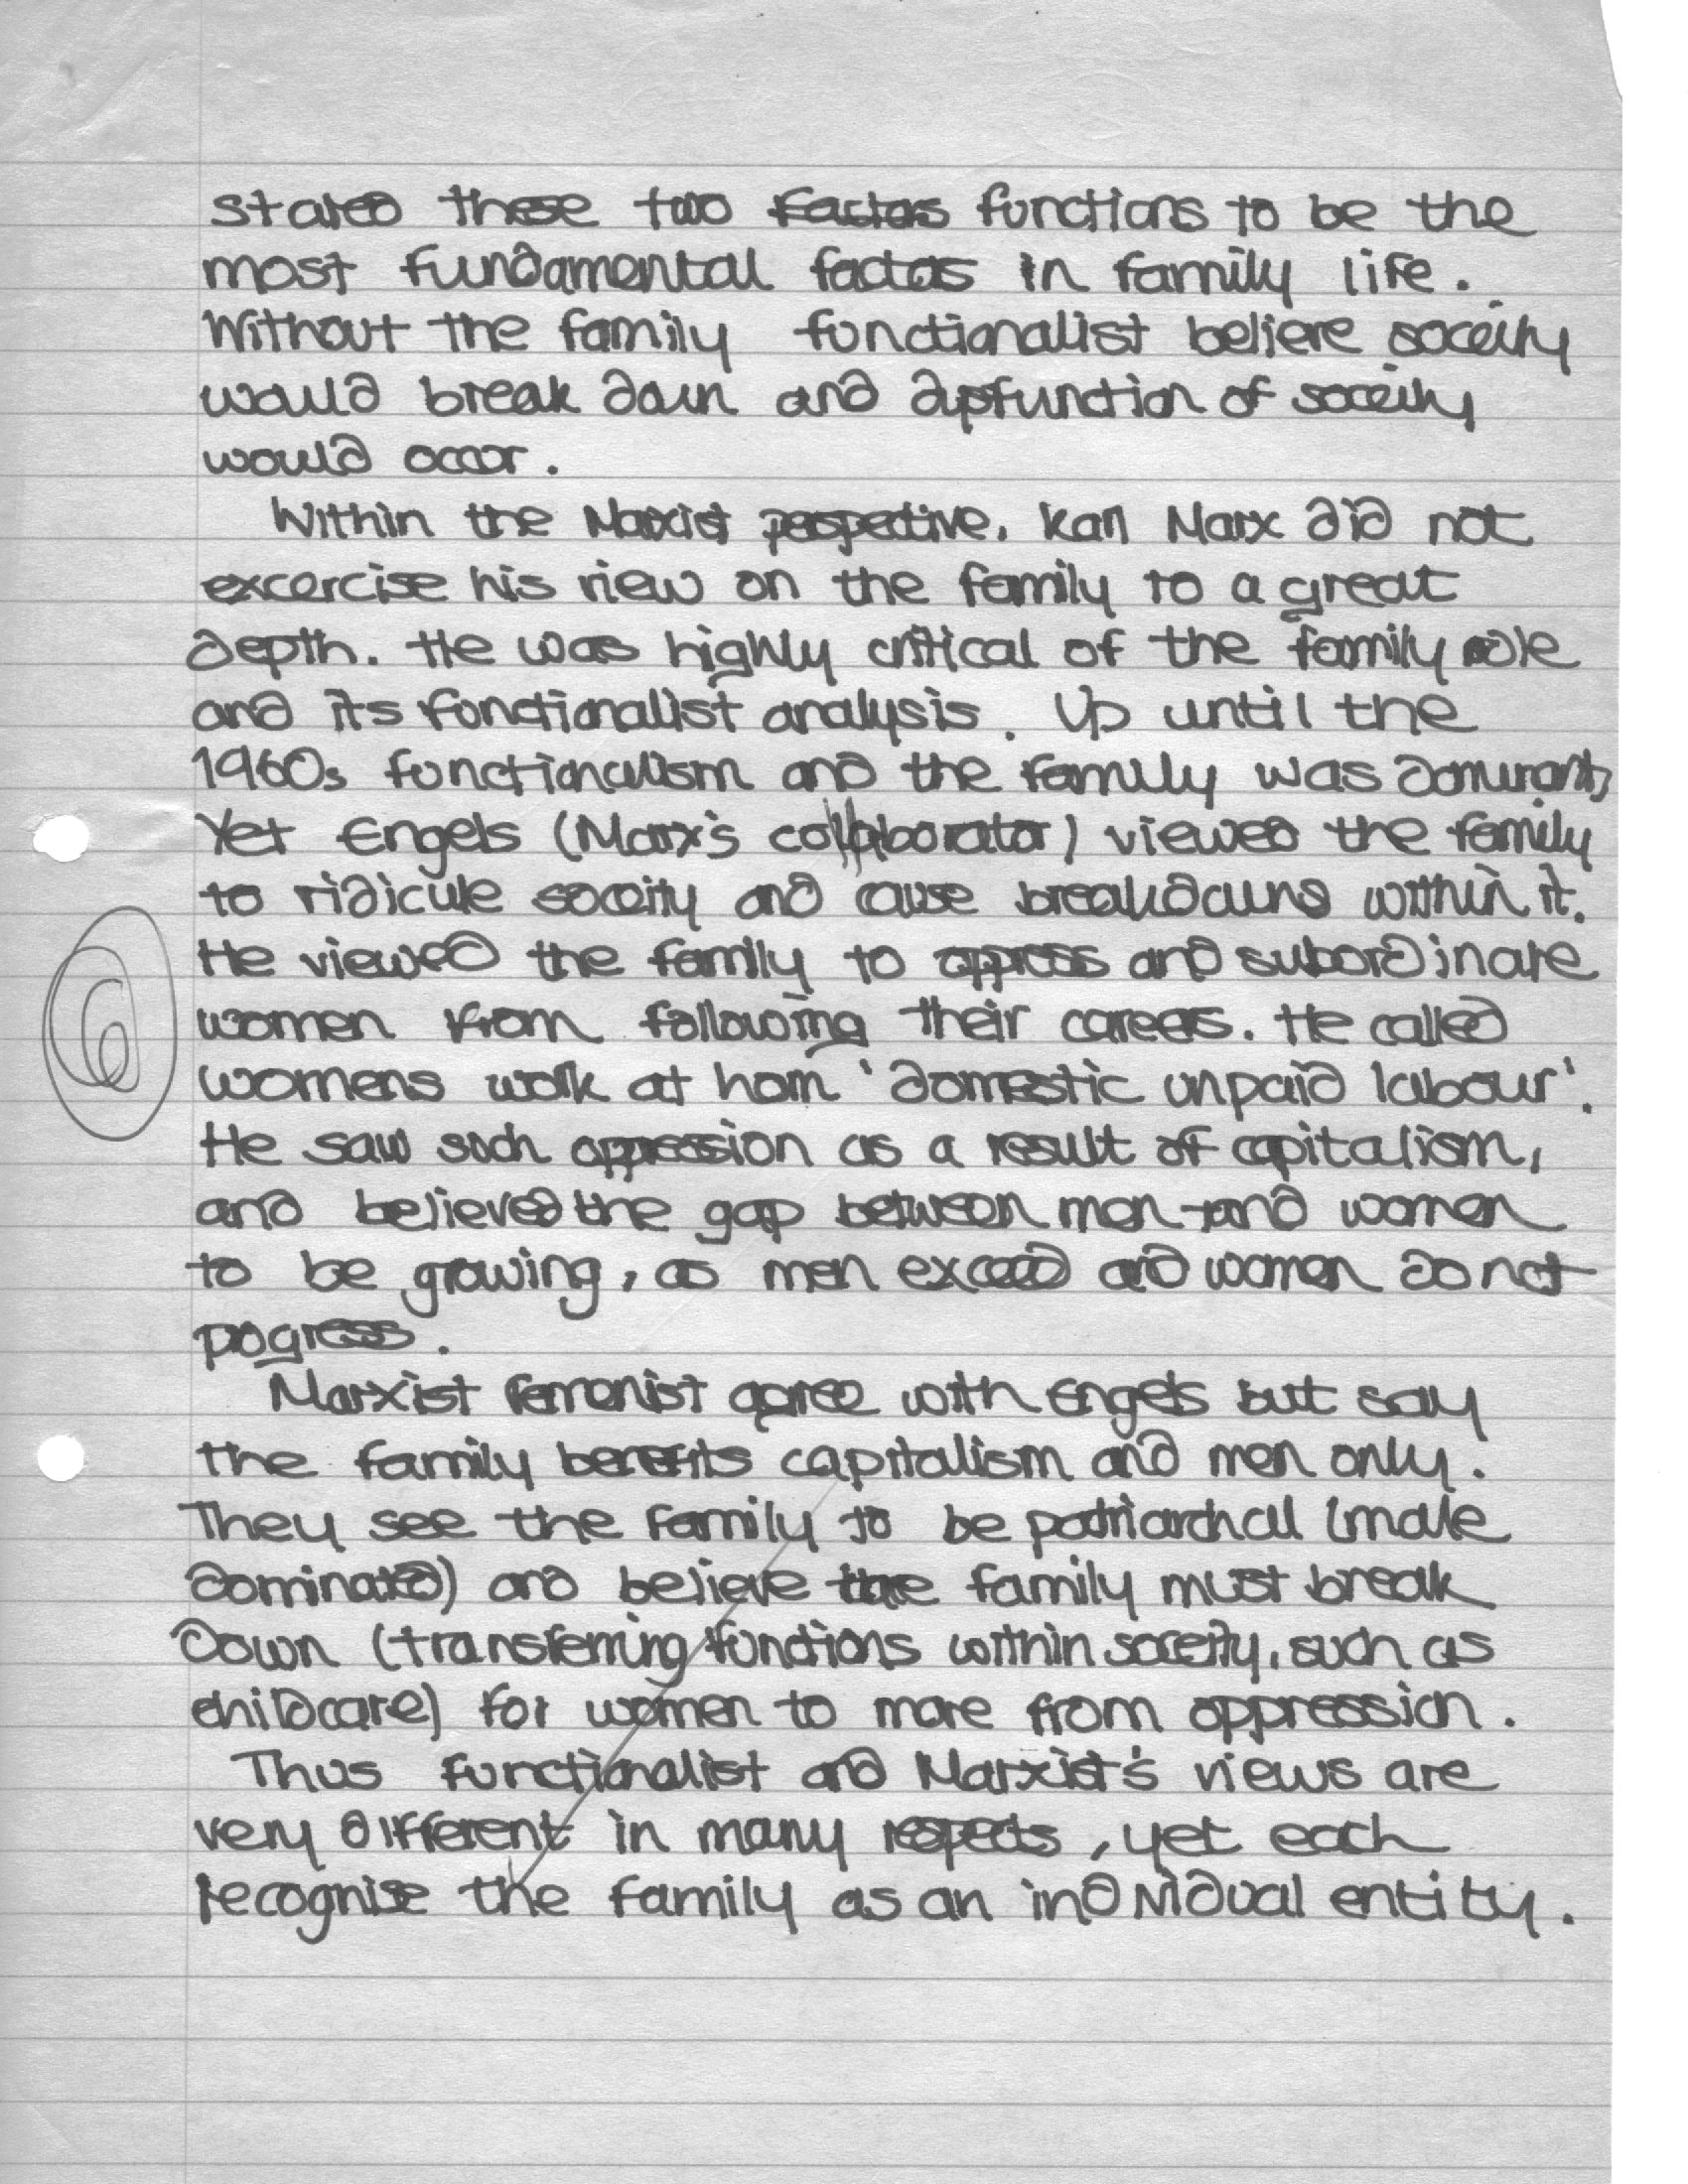 stated these two factors functions to be the
most fundamental factors in family life.
Without the family functionalist believe soceity
would break down and dysfunction of soceity
would occor.
Within the Marxist perspective, Karl Marx did not
excercise his view on the family to a great
depth. He was highly critical of the family role
and its functionalist analysis. Up until the
1960s functionalism and the family was dominant,
Yet Engels (Marx's collaborator) viewed the family
to ridicule soceity and cause breakdowns within it.
He viewed the family to oppress and subordinate
women from following their careers. He called
womens work at hom 'domestic unpaid labour'.
He saw such oppression as a result of capitalism,
and believed the gap between men and women
to be growing, as men exceed and women do not
progress.
Marxist femenist agree with Engels but say
the family benefits capitalism and men only.
They see the family to be patriarchal (male
dominated) and believe the family must break
down (transferring functions within soceity, such as
childcare) for women to move from oppression.
Thus functionalist and Marxist's views are
very different in many respects, yet each
recognise the family as an individual entity.